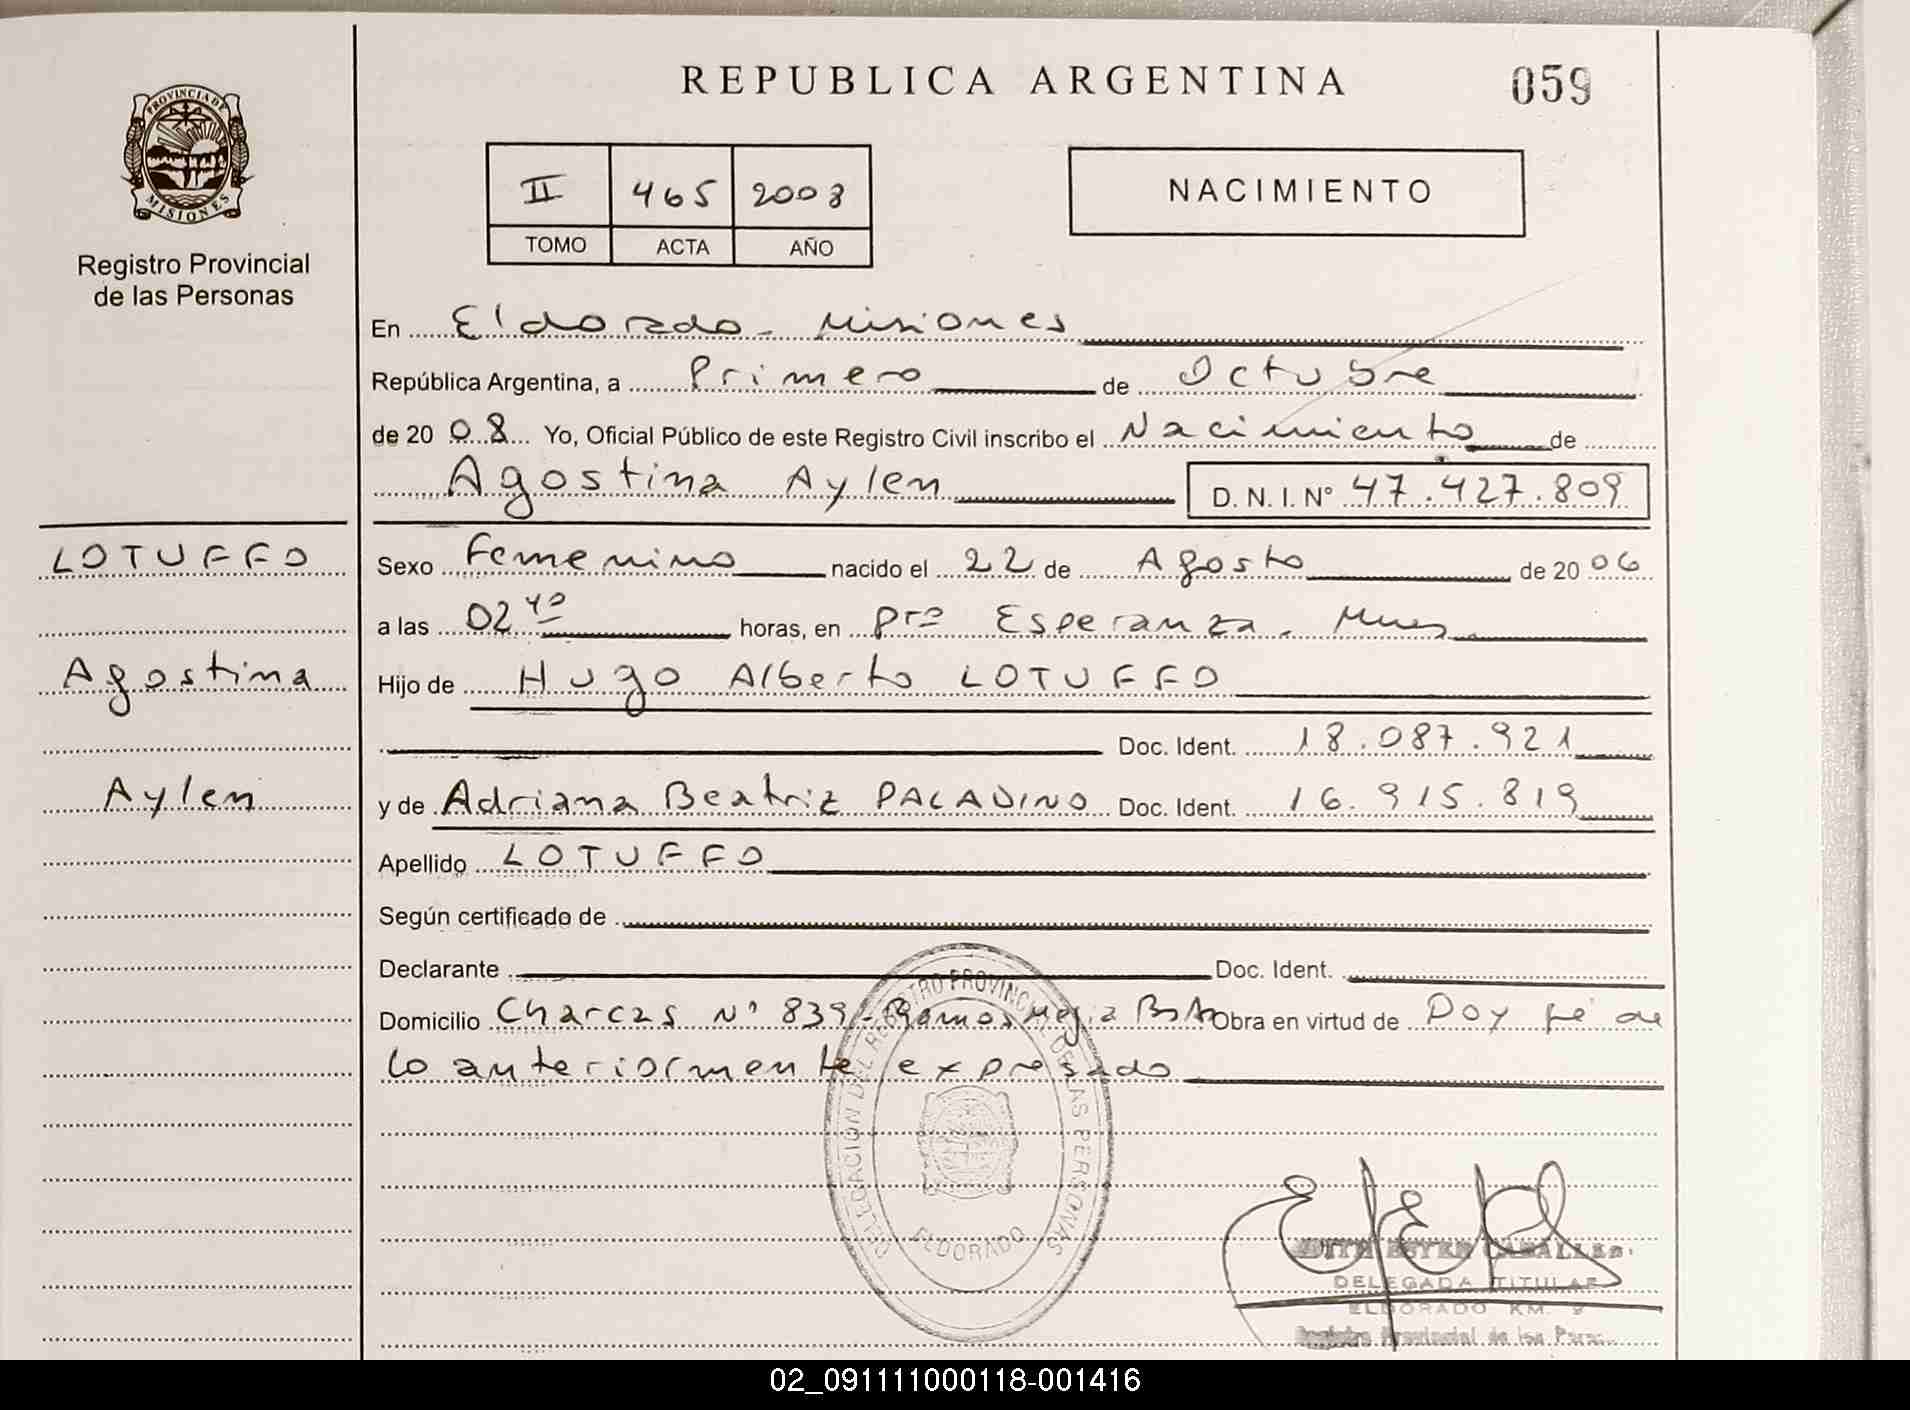 REPUBLICA ARGENTINA
059
PROVINCIA DE
MISIONES
Registro Provincial
de las Personas
II 465 2008
TOMO ACTA AÑO
NACIMIENTO
En Eldorado - Misiones
República Argentina, a Primero de Octubre
de 20 08 Yo, Oficial Público de este Registro Civil inscribo el Nacimiento de
Agostina Aylen D. N. I. N° 47.427.809
LOTUFFO
Agostina
Aylen
Sexo Femenino nacido el 22 de Agosto de 20 06
a las 02 40 horas, en Pto Esperanza - Mnes
Hijo de Hugo Alberto LOTUFFO
Doc. Ident. 18.087.921
y de Adriana Beatriz PALADINO Doc. Ident. 16.915.819
Apellido LOTUFFO
Según certificado de
Declarante Doc. Ident.
Domicilio Charcas N° 839 - Ramos Mejia Bs As Obra en virtud de Doy fé de
lo anteriormente expresado
DELEGACION DEL REGISTRO PROVINCIAL DE LAS PERSONAS
ELDORADO
DELEGADA TITULAR
ELDORADO KM. 9
Registro Provincial de las Pers
02_091111000118-001416